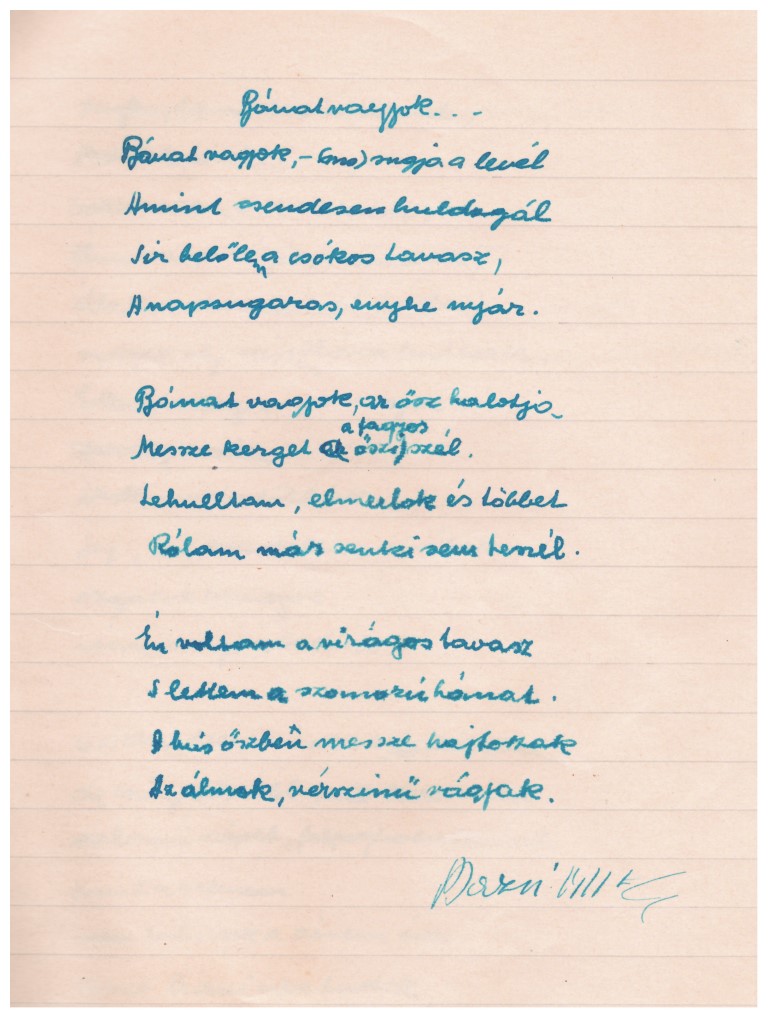 Bánat vagyok...-
Bánat vagyok, - (ms) sugja a levél
Amint csendesen huldogál
Sir belőlem a csókos tavasz,
A napsugaras, enyhe nyár.
Bánat vagyok, az ősz halotja
a fagyos
Messze kerget az (őszi) szél.
Lehulltam, elmerlok és többet
Rólam már senki sem beszél.
Én voltam a virágos tavasz
S lettem a szomorú bánat.
A bús őszben messze hajtottak
Az álmok, vérszinű vágyak.